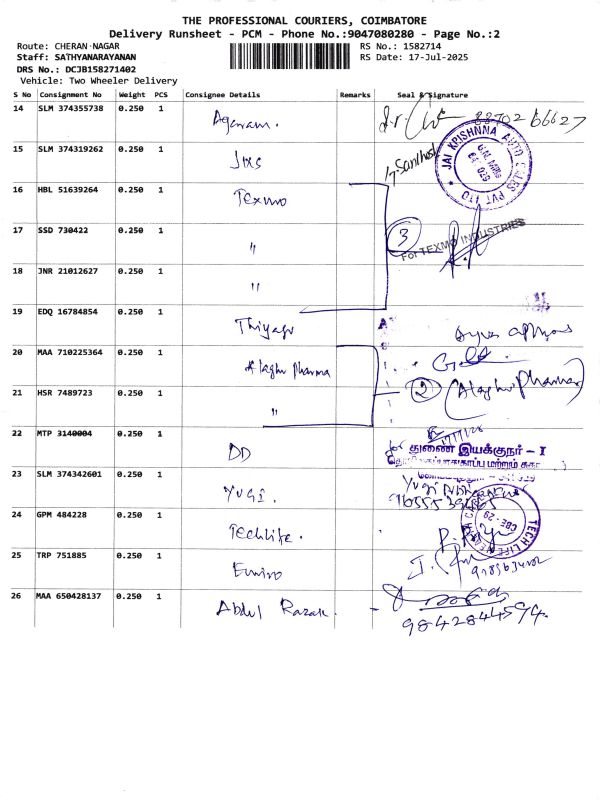 THE PROFESSIONAL COURIERS, COIMBATORE
Delivery Runsheet - PCM - Phone No.:9047080280 - Page No.:2
Route: CHERAN·NAGAR RS No.: 1582714
Staff: SATHYANARAYANAN RS Date: 17-Jul-2025
DRS No.: DCJB158271402
Vehicle: Two Wheeler Delivery
S No Consignment No Weight PCS Consignee Details Remarks Seal & Signature
14 SLM 374355738 0.250 1 Aganam.
15 SLM 374319262 0.250 1 JAI KRISHNNA AUTO SALES PVT LTD
16 HBL 51639264 0.250 1 Texmo
17 SSD 730422 0.250 1 " 3 For TEXMO INDUSTRIES
18 JNR 21012627 0.250 1 "
19 EDQ 16784854 0.250 1 Thiyagu
20 MAA 710225364 0.250 1 Alaghu pharma
21 HSR 7489723 0.250 1 " 2 (Alaghu Pharma)
22 MTP 3140004 0.250 1 DD துணை இயக்குநர் - I
23 SLM 374342601 0.250 1 YUGI.
24 GPM 484228 0.250 1 Techlife. TECH LIFE CBE-29
25 TRP 751885 0.250 1 Enviro
26 MAA 650428137 0.250 1 Abdul Razak. 9842844594.